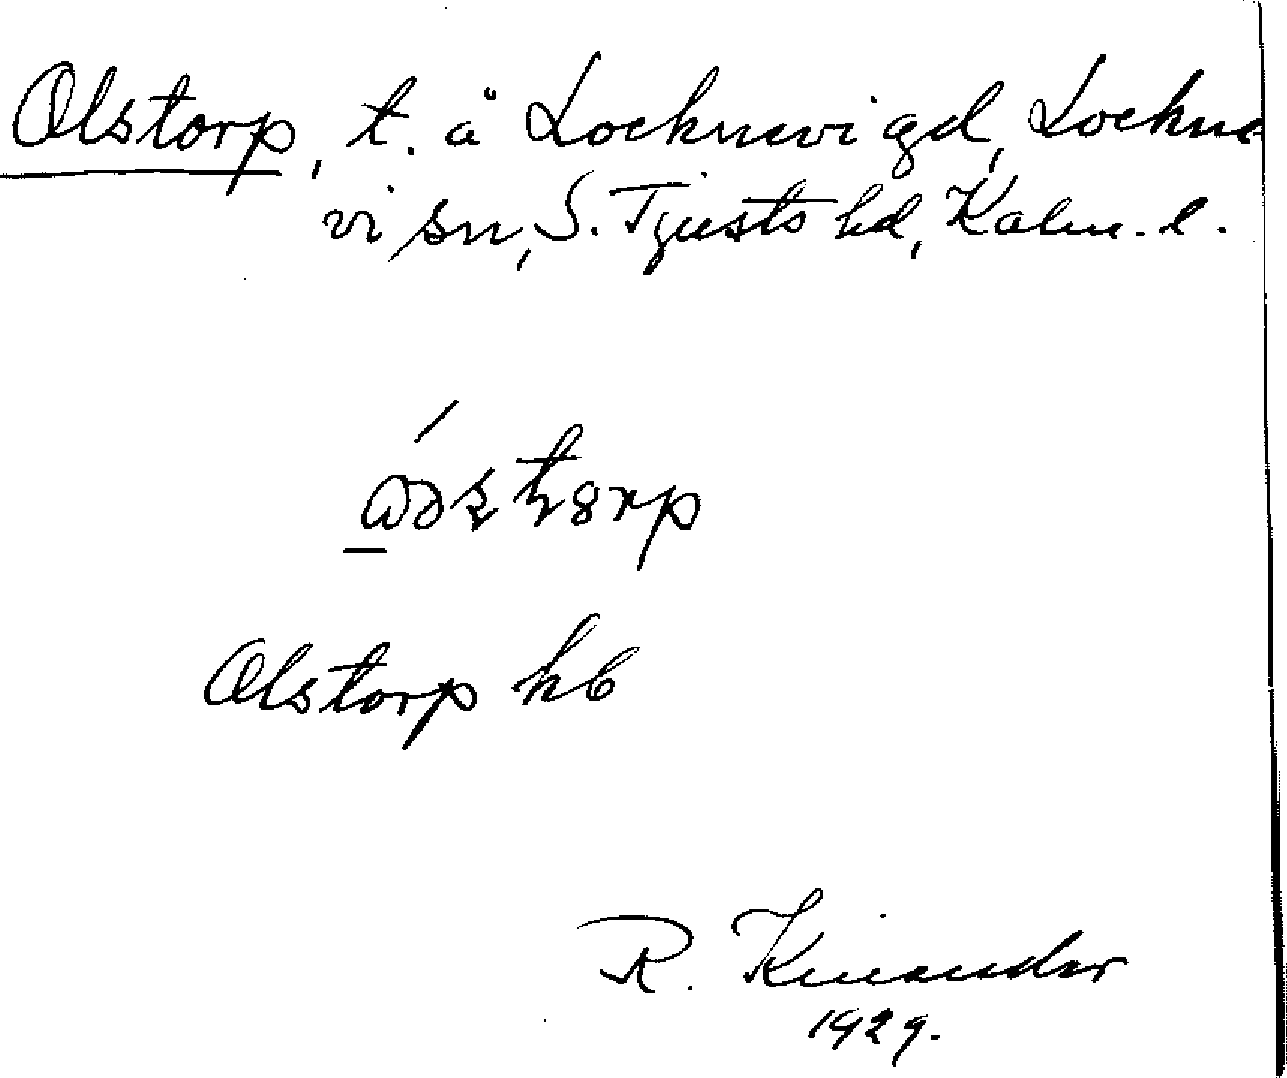 Olstorp, t. å Locknevi gd, Lockne
vi sn, S. Tjusts hd, Kalm. l.
Olstorp kb
R. Kinander
1929.